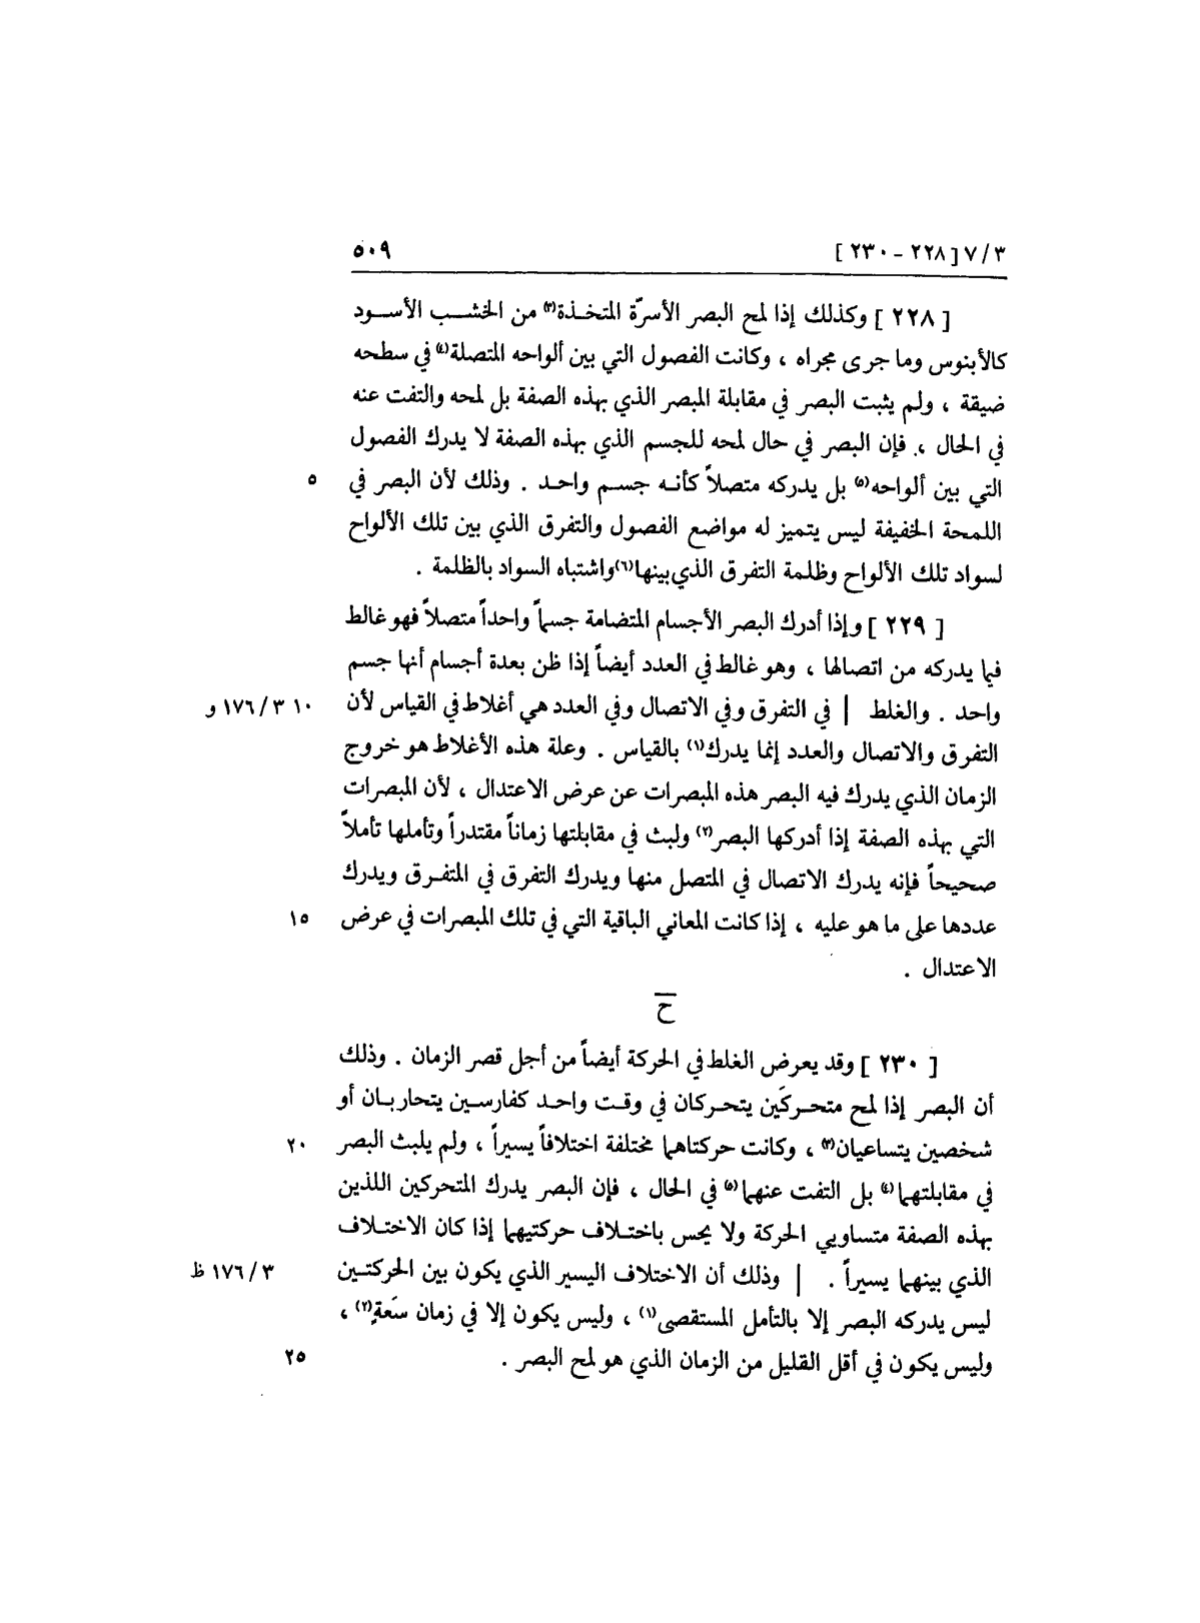 ٣/٧ [٢٢٨ - ٢٣٠] ٥٠٩
[ ٢٢٨ ] وكذلك إذا لمح البصر الأسرّة المتخذة(٣) من الخشب الأسود
كالأبنوس وما جرى مجراه ، وكانت الفصول التي بين ألواحه المتصلة(٤) في سطحه
ضيقة ، ولم يثبت البصر في مقابلة المبصر الذي بهذه الصفة بل لمحه والتفت عنه
في الحال ، فإن البصر في حال لمحه للجسم الذي بهذه الصفة لا يدرك الفصول
التي بين ألواحه(٥) بل يدركه متصلاً كأنه جسم واحد . وذلك لأن البصر في ٥
اللمحة الخفيفة ليس يتميز له مواضع الفصول والتفرق الذي بين تلك الألواح
لسواد تلك الألواح وظلمة التفرق الذي بينها(٦) واشتباه السواد بالظلمة .
[ ٢٢٩ ] وإذا أدرك البصر الأجسام المتضامة جسماً واحداً متصلاً فهو غالط
فيما يدركه من اتصالها ، وهو غالط في العدد أيضاً إذا ظن بعدة أجسام أنها جسم
واحد . والغلط | في التفرق وفي الاتصال وفي العدد هي أغلاط في القياس لأن ١٠ ٣/١٧٦ و
التفرق والاتصال والعدد إنما يدرك(١) بالقياس . وعلة هذه الأغلاط هو خروج
الزمان الذي يدرك فيه البصر هذه المبصرات عن عرض الاعتدال ، لأن المبصرات
التي بهذه الصفة إذا أدركها البصر(٢) ولبث في مقابلتها زماناً مقتدراً وتأملها تأملاً
صحيحاً فإنه يدرك الاتصال في المتصل منها ويدرك التفرق في المتفرق ويدرك
عددها على ما هو عليه ، إذا كانت المعاني الباقية التي في تلك المبصرات في عرض ١٥
الاعتدال .
ح
[ ٢٣٠ ] وقد يعرض الغلط في الحركة أيضاً من أجل قصر الزمان . وذلك
أن البصر إذا لمح متحركَين يتحركان في وقت واحد كفارسين يتحاربان أو
شخصين يتساعيان(٣) ، وكانت حركتاهما مختلفة اختلافاً يسيراً ، ولم يلبث البصر ٢٠
في مقابلتهما(٤) بل التفت عنهما(٥) في الحال ، فإن البصر يدرك المتحركين اللذين
بهذه الصفة متساويي الحركة ولا يحس باختلاف حركتيهما إذا كان الاختلاف
الذي بينهما يسيراً . | وذلك أن الاختلاف اليسير الذي يكون بين الحركتين ٣/١٧٦ ظ
ليس يدركه البصر إلا بالتأمل المستقصى(١) ، وليس يكون إلا في زمان سَعةٍ(٢) ،
وليس يكون في أقل القليل من الزمان الذي هو لمح البصر . ٢٥